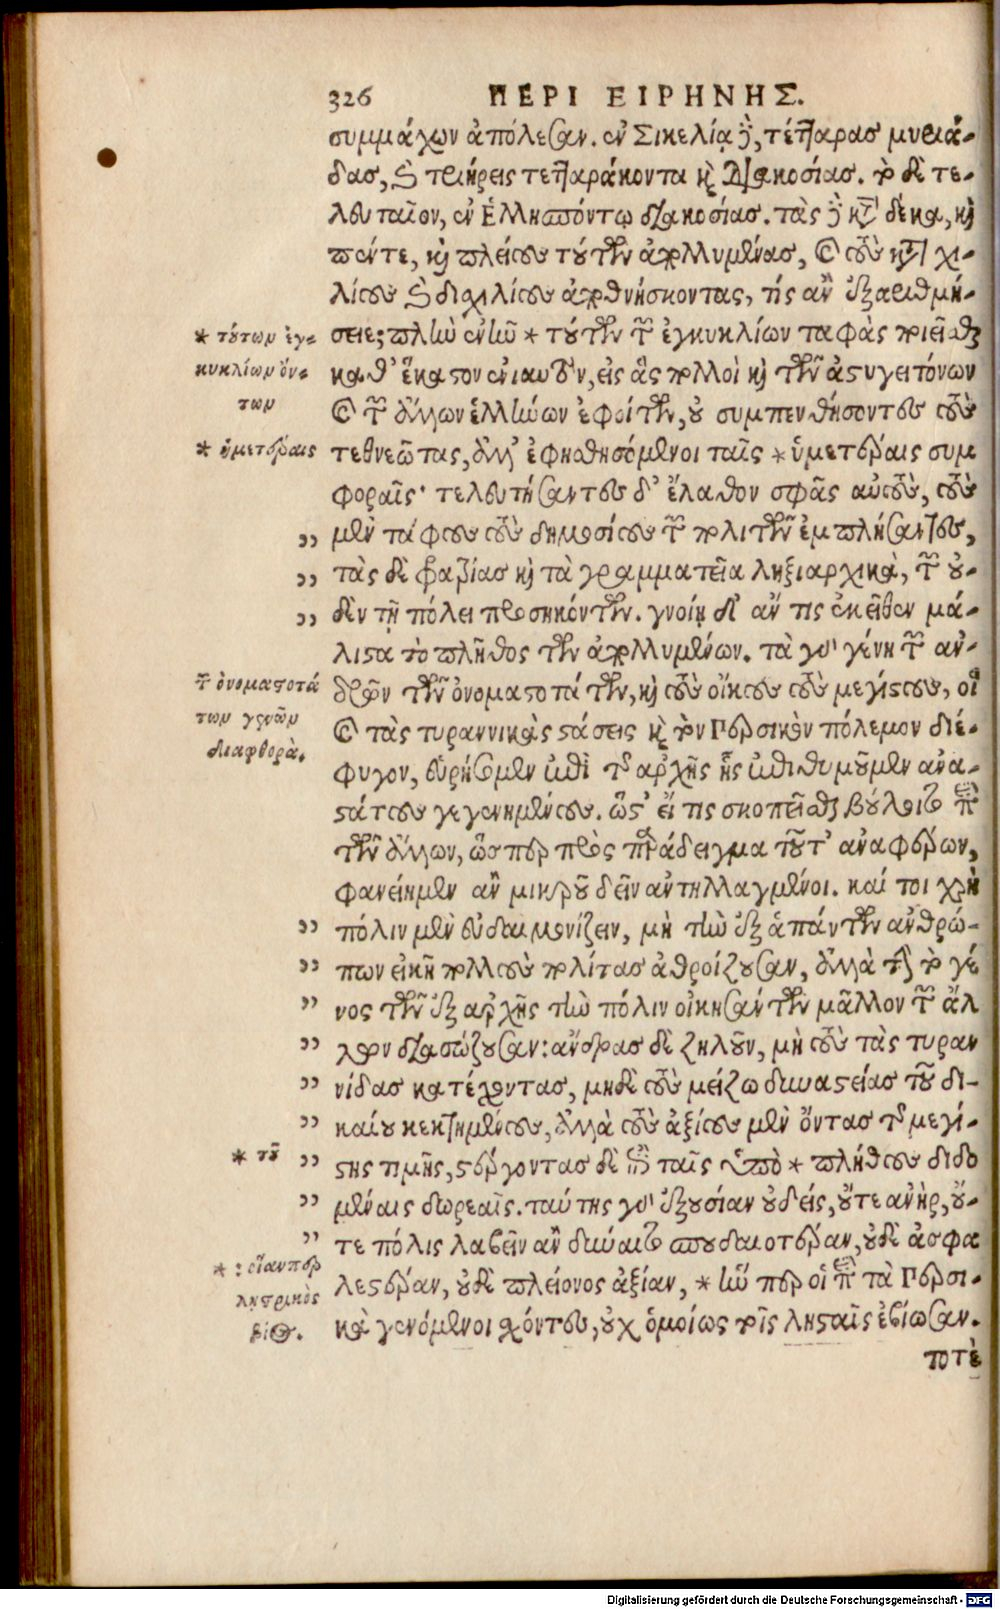 326 ΠΕΡΙ ΕΙΡΗΝΗΣ.
συμμάχων ἀπόλεσαν. ἐν Σικελίᾳ δὲ, τέτταρας μυριά-
δας, καὶ τριήρεις τετταράκοντα καὶ διακοσίας. τὸ δὲ τε-
λευταῖον, ἐν Ἑλλησπόντῳ διακοσίας. τὰς δὲ κατὰ δέκα, καὶ
πέντε, καὶ πλείους τούτων ἀπολλυμένας, καὶ τοὺς κατὰ χι-
λίους καὶ δισχιλίους ἀποθνήσκοντας, τίς ἂν ἐξαριθμή-
σειε; πλὴν ἓν ἦν * τούτων τῶν ἐγκυκλίων ταφὰς ποιεῖσθαι
καθ' ἕκαστον ἐνιαυτὸν, εἰς ἃς πολλοὶ καὶ τῶν ἀστυγειτόνων
καὶ τῶν ἄλλων ἑλλήνων ἐφοίτων, οὐ συμπενθήσοντες τοὺς
τεθνεῶτας, ἀλλ' ἐφησθησόμενοι ταῖς * ὑμετέραις συμ
φοραῖς· τελευτήσαντες δ' ἔλαθον σφᾶς αὐτοὺς, τοὺς
μὲν τάφους τοὺς δημοσίους τῶν πολιτῶν ἐμπλήσαντες,
τὰς δὲ φατρίας καὶ τὰ γραμματεῖα ληξιαρχικὰ, τῶν οὐ-
δὲν τῇ πόλει προσηκόντων. γνοίη δ' ἄν τις ἐκεῖθεν μά-
λιστα τὸ πλῆθος τῶν ἀπολλυμένων. τὰ γὰρ γένη τῶν ἀν-
δρῶν τῶν ὀνομαστοτάτων, καὶ τοὺς οἴκους τοὺς μεγίστους, οἳ
καὶ τὰς τυραννικὰς στάσεις καὶ τὸν Περσικὸν πόλεμον διέ-
φυγον, εὑρήσομεν ἐπὶ τῆς ἀρχῆς ἧς ἐπιθυμοῦμεν ἀνα-
στάτους γεγενημένους. ὥστ' εἴ τις σκοπεῖσθαι βούλοιτο περὶ
τῶν ἄλλων, ὥσπερ πρὸς παράδειγμα τοῦτ' ἀναφέρων,
φανείημεν ἂν μικροῦ δεῖν ἀντηλλαγμένοι. καί τοι χρὴ
πόλιν μὲν εὐδαιμονίζειν, μὴ τὴν ἐξ ἁπάντων ἀνθρώ-
πων εἰκῆ πολλοὺς πολίτας ἀθροίζουσαν, ἀλλὰ τὴν τὸ γέ
νος τῶν ἐξ ἀρχῆς τὴν πόλιν οἰκησάντων μᾶλλον τῶν ἄλ
λων διασώζουσαν: ἄνδρας δὲ ζηλοῦν, μὴ τοὺς τὰς τυραν
νίδας κατέχοντας, μηδὲ τοὺς μείζω δυναστείας τοῦ δι-
καίου κεκτημένους, ἀλλὰ τοὺς ἀξίους μὲν ὄντας τῆς μεγί-
στης τιμῆς, στέργοντας δὲ ἐπὶ ταῖς ὑπὸ * πλήθους διδο
μέναις δωρεαῖς. ταύτης γὰρ ἐξουσίαν οὐδείς, οὔτε ἀνὴρ, οὔ-
τε πόλις λαβεῖν ἂν δύναιτο σπουδαιοτέραν, οὐδὲ ἀσφα
λεστέραν, οὐδὲ πλείονος ἀξίαν, * ἥν περ οἱ περὶ τὰ Περσι-
κὰ γενόμενοι ἔχοντες, οὐχ ὁμοίως τοῖς λῃσταῖς ἐβίωσαν.
ποτὲ
* τούτων ἐγ-
κυκλίων ὄν-
των
* ἡμετέραις
τῶν ὀνομαστοτά
των γενῶν
διαφθορὰ.
* τοῦ
* : οἵανπερ
λῃστρικὸς
βίος.
Digitalisierung gefördert durch die Deutsche Forschungsgemeinschaft - DFG